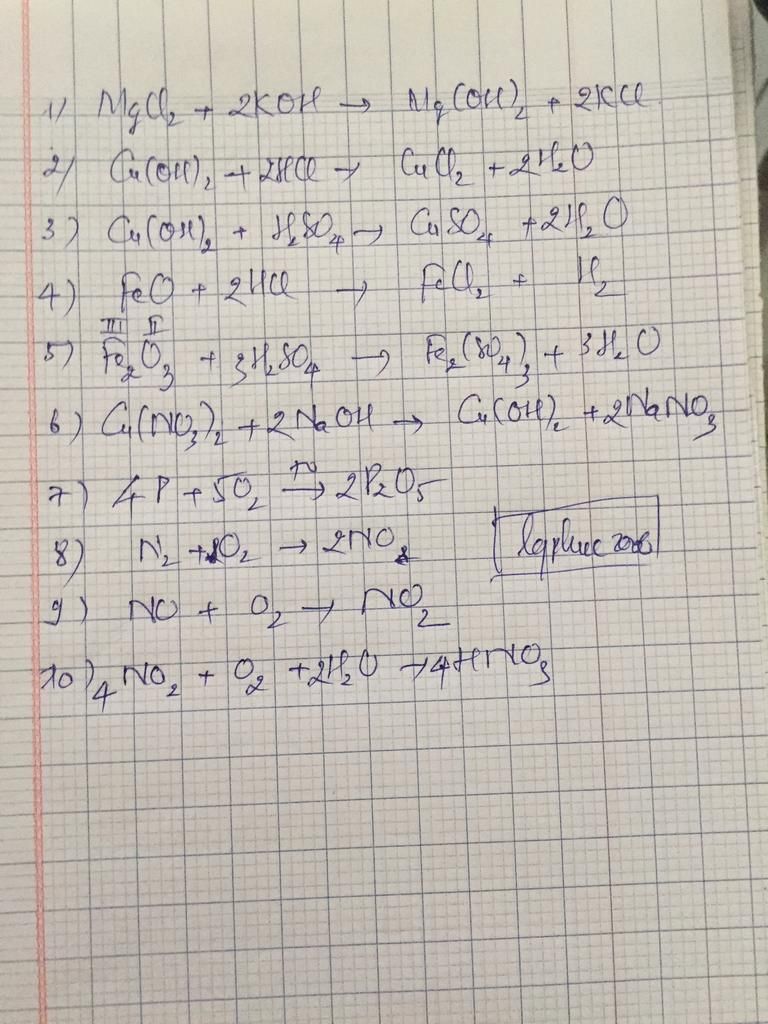 1) MgCl₂ + 2KOH → Mg(OH)₂ + 2KCl
2) Cu(OH)₂ + 2HCl → CuCl₂ + 2H₂O
3) Cu(OH)₂ + H₂SO₄ → CuSO₄ + 2H₂O
4) FeO + 2HCl → FeCl₂ + H₂
III II
5) Fe₂O₃ + 3H₂SO₄ → Fe₂(SO₄)₃ + 3H₂O
6) Cu(NO₃)₂ + 2NaOH → Cu(OH)₂ + 2NaNO₃
7) 4P + 5O₂ → 2P₂O₅
8) N₂ + O₂ → 2NO
9) NO + O₂ → NO₂
10) 4NO₂ + O₂ + 2H₂O → 4HNO₃